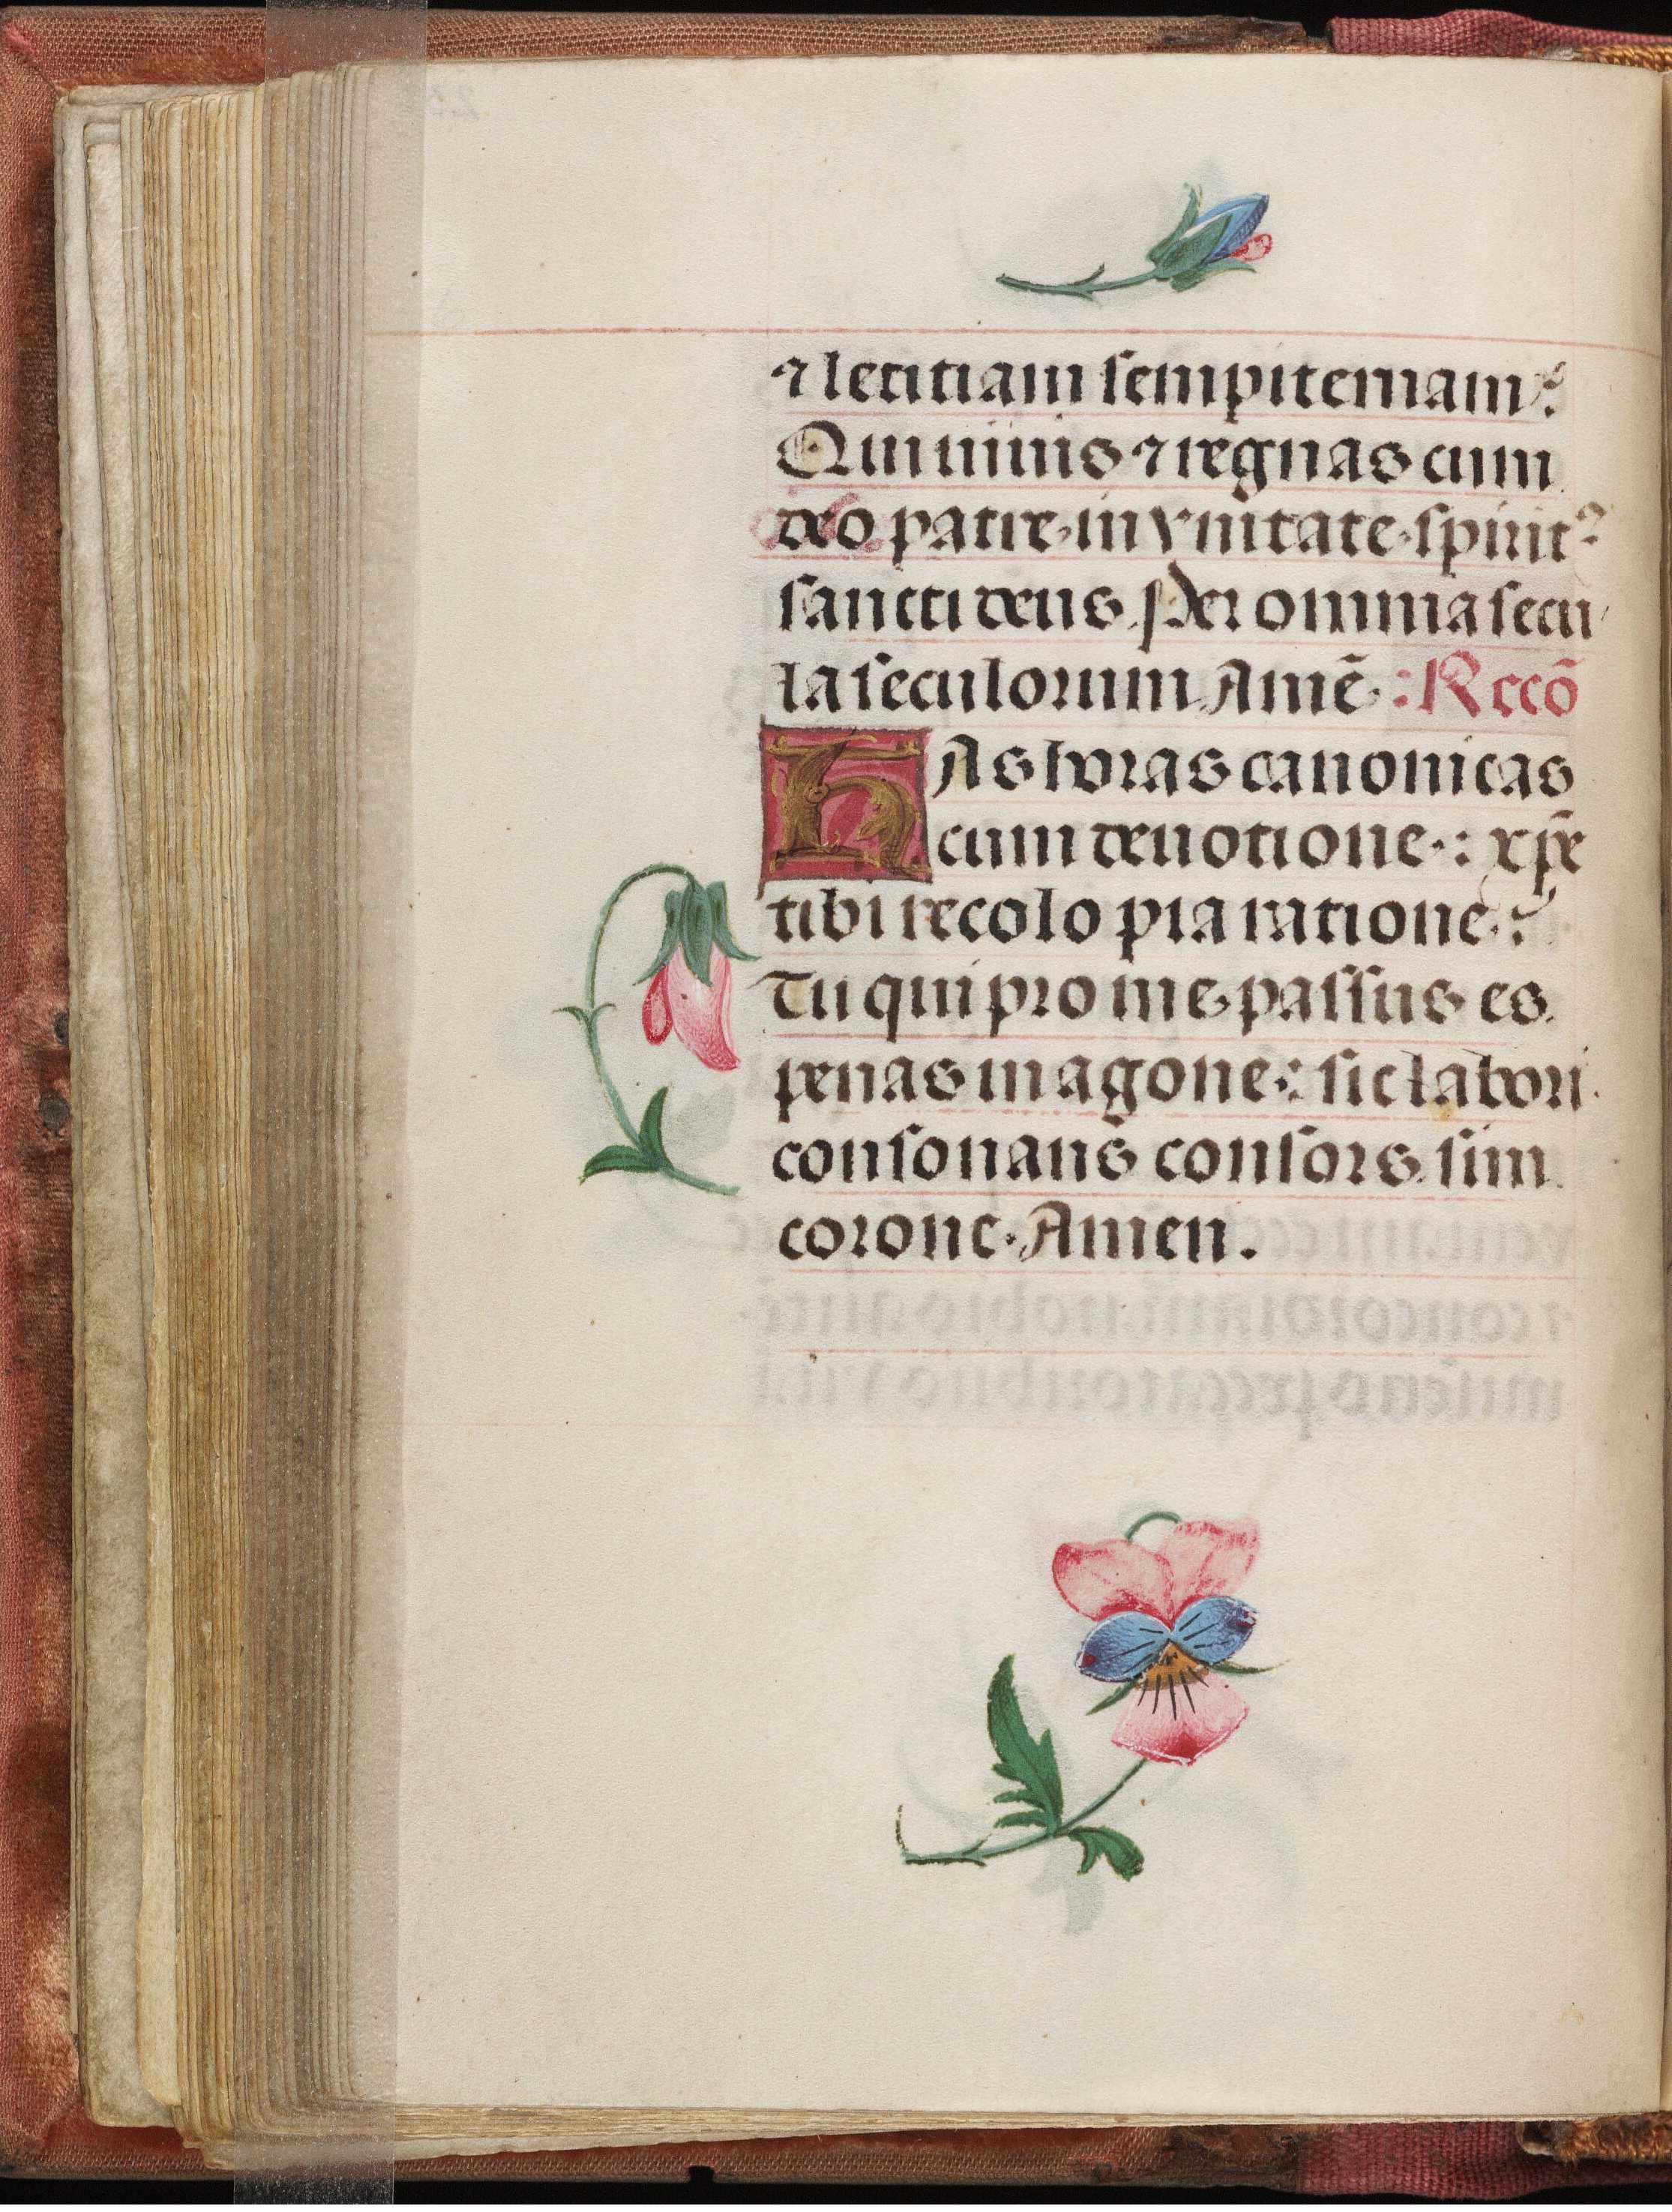 ⁊ letitiam sempiternam:
Qui uiuis ⁊ regnas cum
deo patre in vnitate spirit⁹
sancti deus. Per omnia secu
la seculorum Amē : Reco᷒
HAs horas canonicas
cum deuotione : xp̄e
tibi recolo pia ratione :
Tu qui pro me passus es
penas in agone : sic labori
consonans consors sim
corone. Amen.